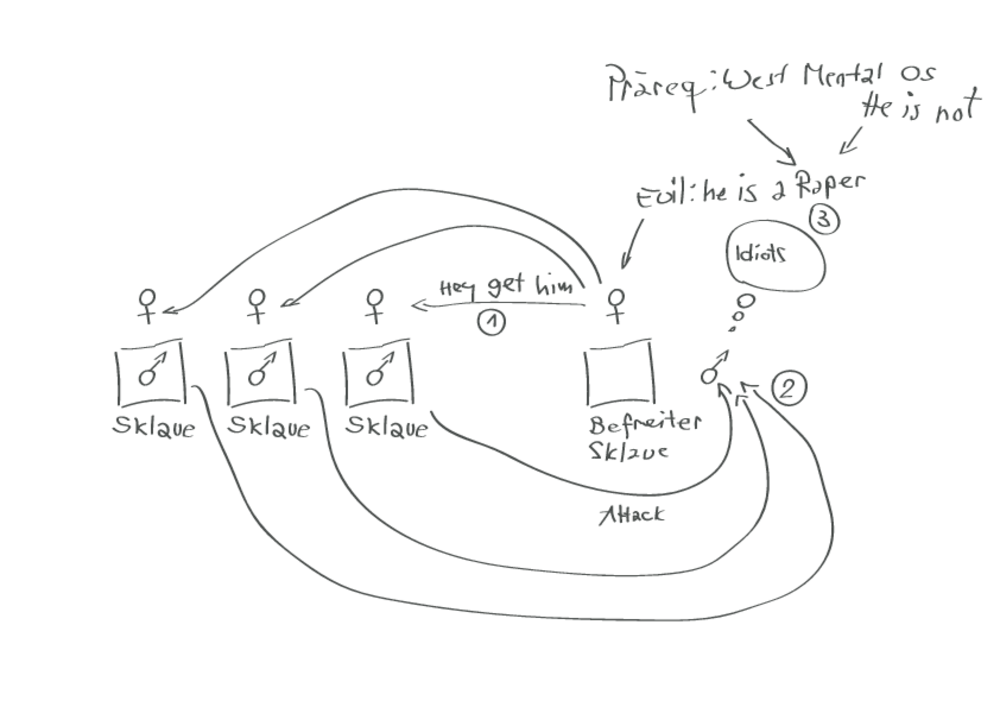 Präreq: West Mental OS
He is not
Evil: he is a Raper
③
Idiots
Hey get him
①
②
Sklave
Sklave
Sklave
Befreiter
Sklave
Attack